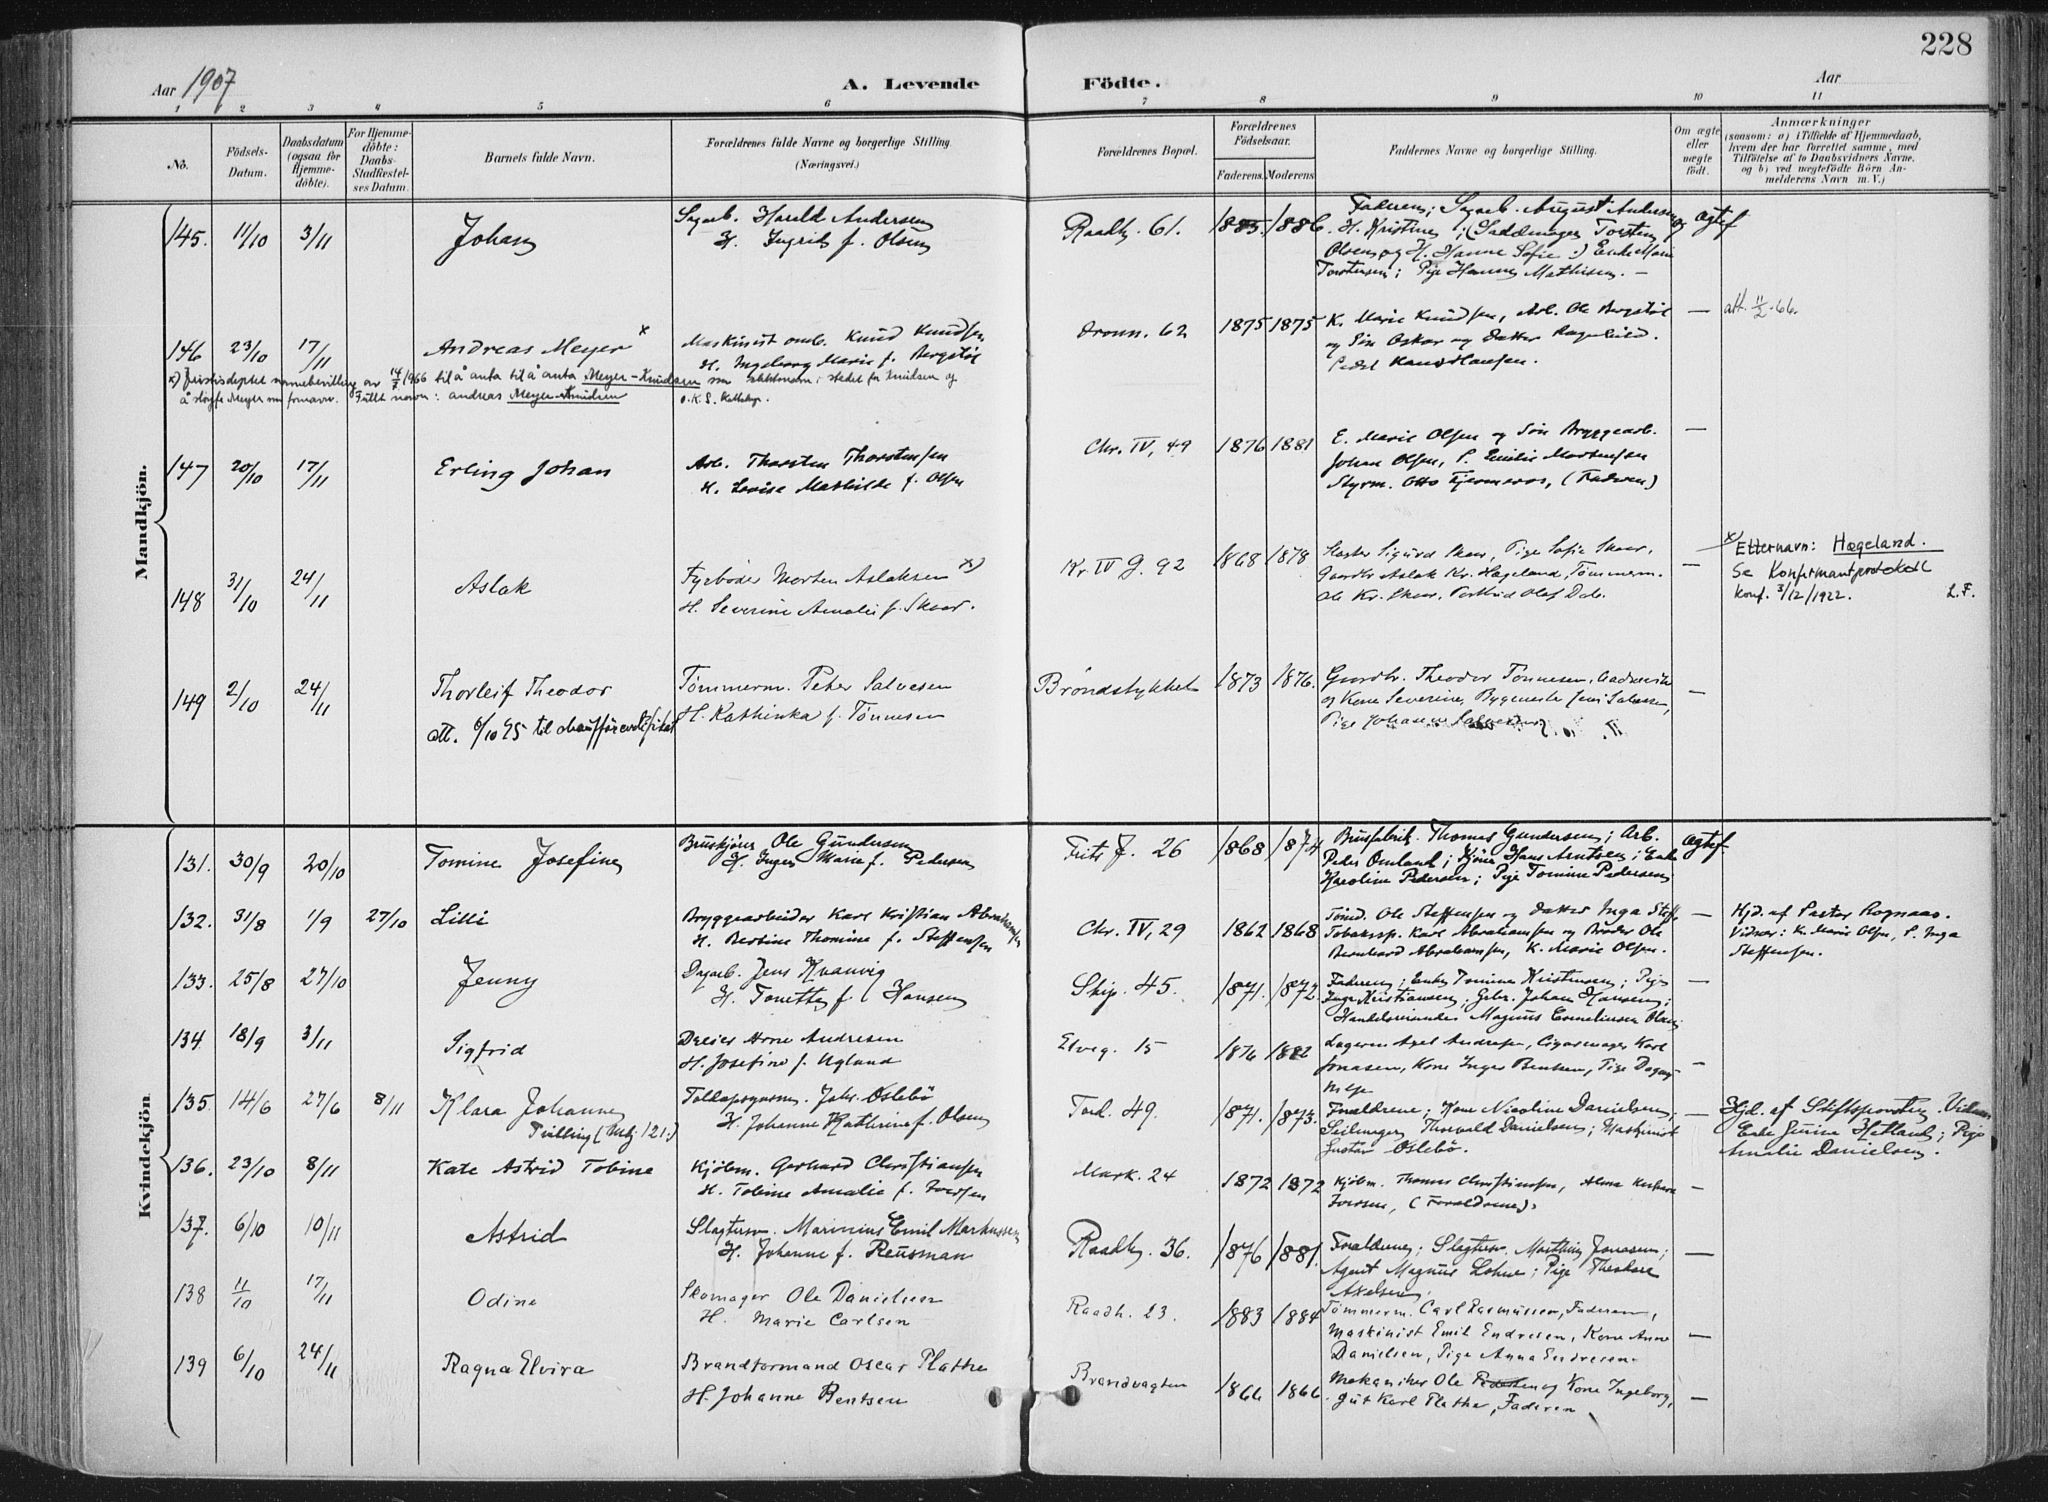 228
Aar 1907
A. Levende Födte.
Aar
1 2 3 4 5 6 7 8 9 10 11
No.
Födsels-Datum.
Daabsdatum (ogsaa for Hjemme-döbte).
For Hjemme-döbte: Daabs-Stadfæstel-ses Datum.
Barnets fulde Navn.
Forældrenes fulde Navne og borgerlige Stilling.
(Næringsvei.)
Forældrenes Bopæl.
Forældrenes Födselsaar.
Faderens. Moderens
Faddernes Navne og borgerlige Stilling.
Om ægte eller uægte födt.
Anmærkninger
(saasom: a) i Tilfælde af Hjemmedaab,
hvem der har forrettet samme, med
Tilföielse af to Daabsvidners Navne,
og b) ved uægtefödte Börn An-
melderens Navn m. V.)
Mandkjön.
145. 11/10 3/11 Johan
Harald Andersen
H. Ingrid f. Olsen
Raadh. 61. 1885. 1886.
Faderen; August Andersen og
H. Kristine; Torsten
Olsen og H. Hanne Sofie.) Enke
Torstensen; Pige Hanna Mathisen. —
Ægtef
146 23/10 17/11 Andreas Meyer x
Maskinist Knud Knudsen
H. Ingeborg Marie f. Bergstøl
Dronn. 62 1875 1875
K. Marie Knudsen, Arb. Ole Bergstøl
og Søn Oskar og Datter Ragnhild.
Hans Hansen.
— att. 11/2-66.
x) Justisdeptet navnebevilling av 14/7 1966 til å anta til å anta Meyer-Knudsen som i stedet for Knudsen og
å sløyfe Meyer som fornavn. Fullt navn: Andreas Meyer-Knudsen
147 20/10 17/11 Erling Johan
Arb. Thorsten Thorstensen
H. Lovise Mathilde f. Olsen
Chr. IV, 49 1876 1881
E. Marie Olsen og Søn Bryggearb.
Johan Olsen, P. Emilie Mortensen
Styrm. Otto Fjermeros, (Faderen)
—
148 31/10 24/11 Aslak
Fyrbøder Morten Aslaksen x)
H. Severine Amalie f. Skaar.
Kr. IV G. 92 1868 1878
Sigurd Skaar, Pige Sofie Skaar,
Gaardbr. Aslak Kr. Hageland, Tømmerm.
Ole Kr. Skaar, Olaf Dale.
—
x Etternavn: Hægeland.
Se Konfirmantprotokoll
konf. 3/12/1922. L.F.
149 2/10 24/11 Thorleif Theodor
att. 6/10 45 til
Tømmerm. Peter Salvesen
H. Kathinka f. Tønnesen
Brøndstykket 1873 1876.
Gaardbr. Theodor Tønnesen,
og Kone Severine, Bygmester Jens Salvesen,
Pige Johanne Salvesen
—
Kvindekjön
131. 30/9 20/10 Tomine Josefine
Ole Gundersen
H. Inger Marie f. Pedersen
Frits J. 26 1868 1874
Brusfabrik. Thomas Gundersen; Arb.
Peder Omland; Kjører Hans Arntsen; Enke
Karoline Pedersen; Pige Tomine Pedersen
Ægtef.
132. 31/8 1/9 27/10 Lilli
Bryggearbeider Karl Kristian Abrahamsen
H. Bertine Thomine f. Steffensen
Chr. IV, 29 1862 1868
Ole Steffensen og Datter Inga Steff.
Tobakssp. Karl Abrahamsen og Broder Ole
Bernhard Abrahamsen, K. Marie Olsen.
—
Hjd. af Pastor Rognaas.
Vidner: K. Marie Olsen, P. Inga
Steffensen.
133. 25/8 27/10 Jenny
Dagarb. Jens Kvanvig
H. Tonette f. Hansen
Skip. 45. 1871. 1872.
Faderen; Enke Tomine Kristensen; Pige
Inga Kristiansen; Johan Hansen;
Handelsreisende Magnus Corneliussen Olsen;
—
134 18/9 3/11 Sigfrid
Dreier Arne Andresen
H. Josefine f. Ugland
Elveg. 15 1876 1882
Axel Andresen, Cigarmager Karl
Jonasen, Kone Inger Bentsen, Pige Dagny
—
135. 14/6 27/6 8/11 Klara Johanne
Tvilling (mk. 121.)
Toldopsynsm. Johs. Oslebö
H. Johanne Kathrine f. Olsen
Tord. 49. 1871. 1873.
Forældrene; Kone Nicoline Danielsen;
Seilmager Thorvald Danielsen; Maskinist
Gustav Oslebö.
—
Hjd. af Stiftsprovsten. Vidner
Enke Jensine Hetland; Pige
Amalie Danielsen.
136. 23/10 8/11 Kate Astrid Tobine
Kjöbm. Gerhard Christiansen
H. Tobine Amalie f. Iversen
Mark. 24 1872 1872
Kjöbm. Thomas Christiansen, Alma
Iversen, (Forældrene).
—
137. 6/10 10/11 Astrid
Slagtersv. Marinius Emil Markussen
H. Johanne f. Reusman
Raadh. 36. 1876 1881.
Forældrene; Slagtersv. Jonasen;
Agent Magnus Lohne; Pige Theodora
Axelsen.
—
138 11/10 17/11 Odine
Skomager Ole Danielsen
H. Marie Carlsen
Raadh. 23. 1883 1884
Tømmerm. Carl Rasmussen, Faderen,
Maskinist Emil Endresen, Kone Anne
Danielsen, Pige Anna Endresen.
—
139 6/10 24/11 Ragna Elvira
Brandformand Oscar Plathe
H. Johanne Bentsen
Brandvagten 1866 1866
Mekaniker Ole Pedersen og Kone Ingeborg,
Gut Karl Plathe, Faderen
—